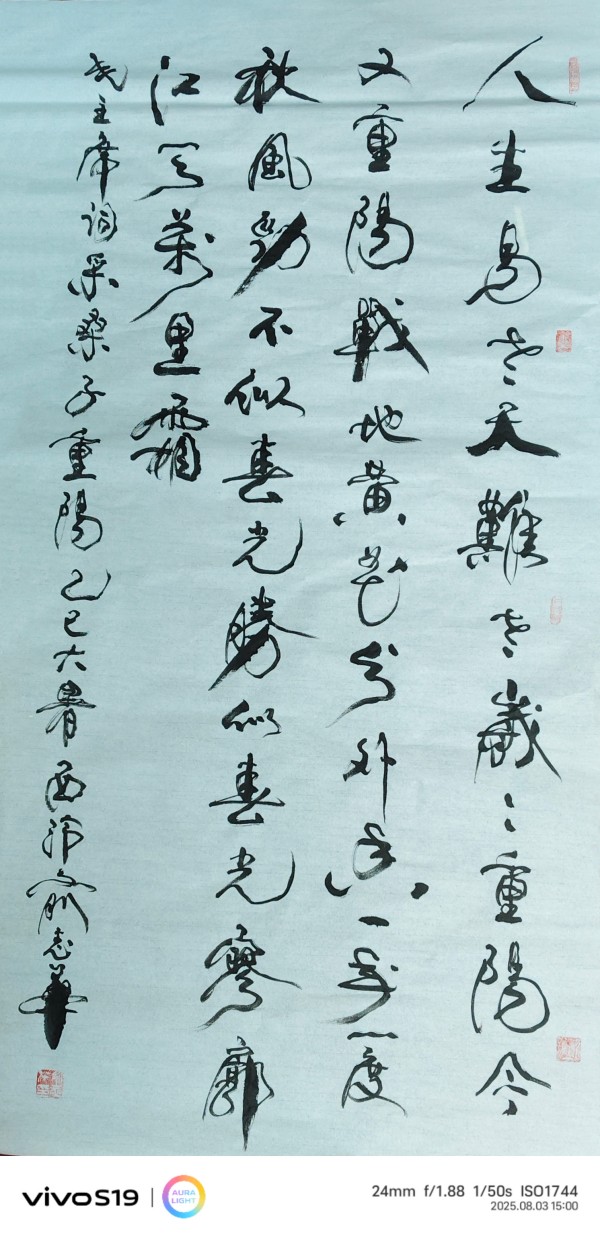 人生易老天難老歲々重陽今
又重陽戰地黄花分外香一年一度
秋風勁不似春光勝似春光寥廓
江天萬里霜
毛主席詞采桑子重陽乙巳大暑西泠俞志華
vivo S19 | AURA LIGHT
24mm f/1.88 1/50s ISO1744
2025.08.03 15:00